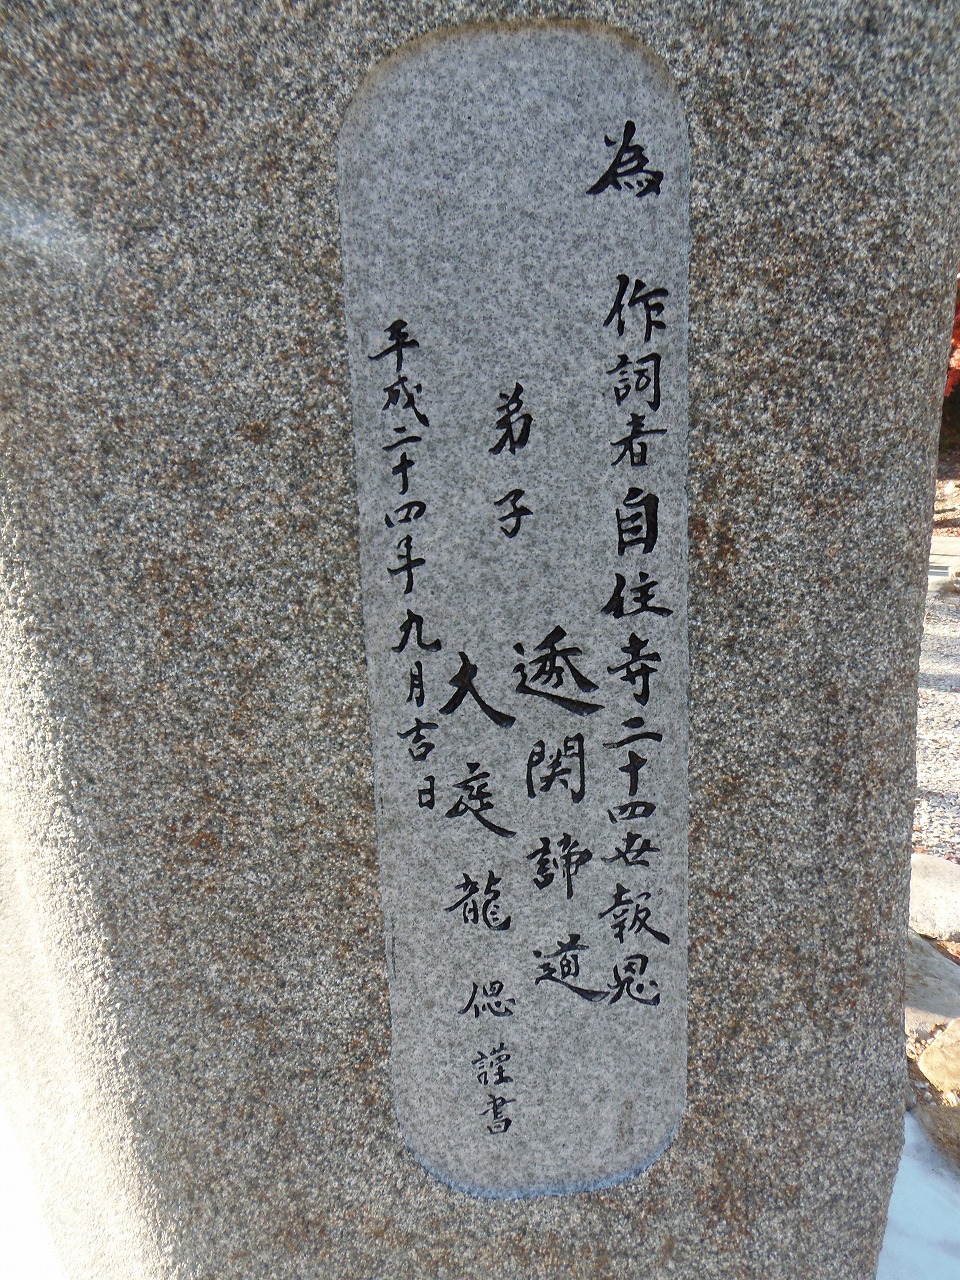 為 作詞者自住寺二十四世報恩
弟子 透関諦道
大庭龍 偲 謹書
平成二十四年九月吉日